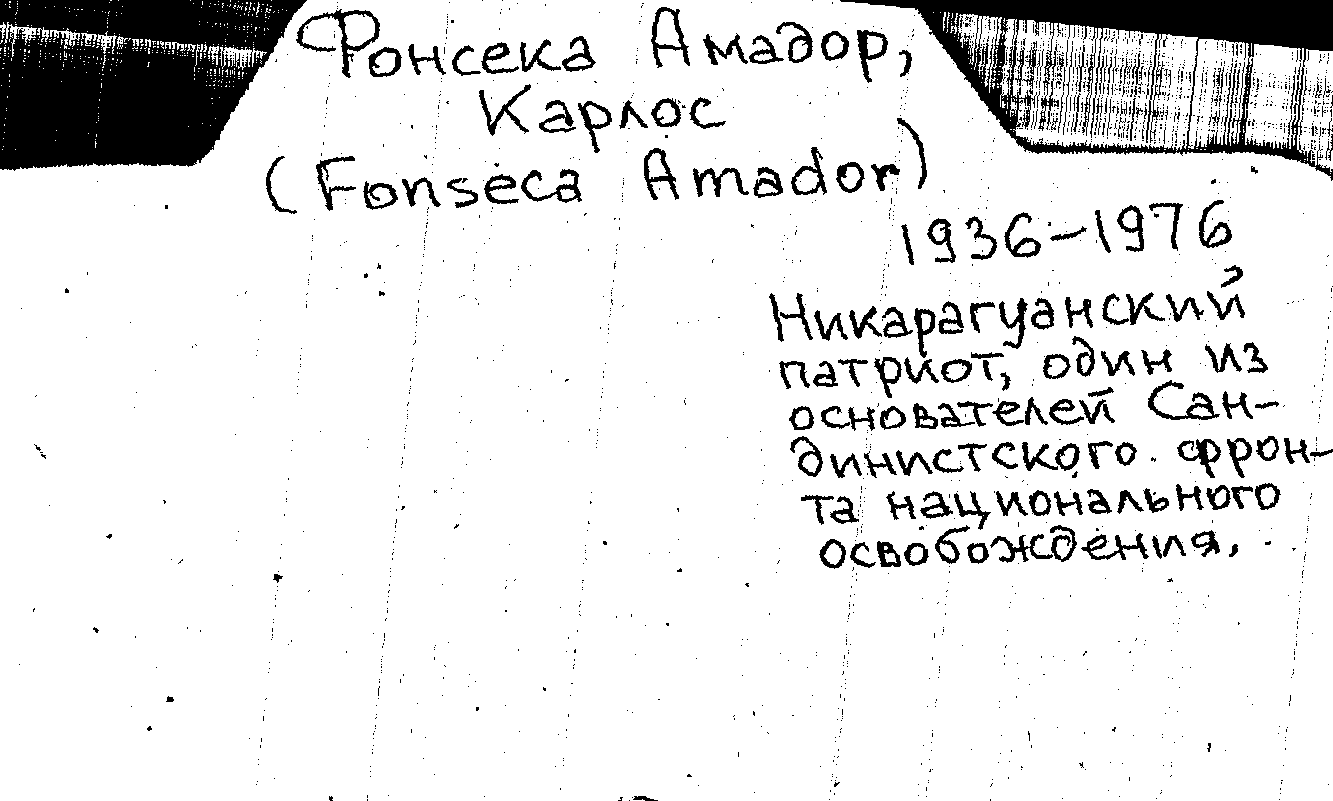 Фонсека Амадор,
Карлос
(Fonseca Amador)
1936-1976
Никарагуанский
патриот, один из
основателей Сан-
динистского фрон-
та национального
освобождения.